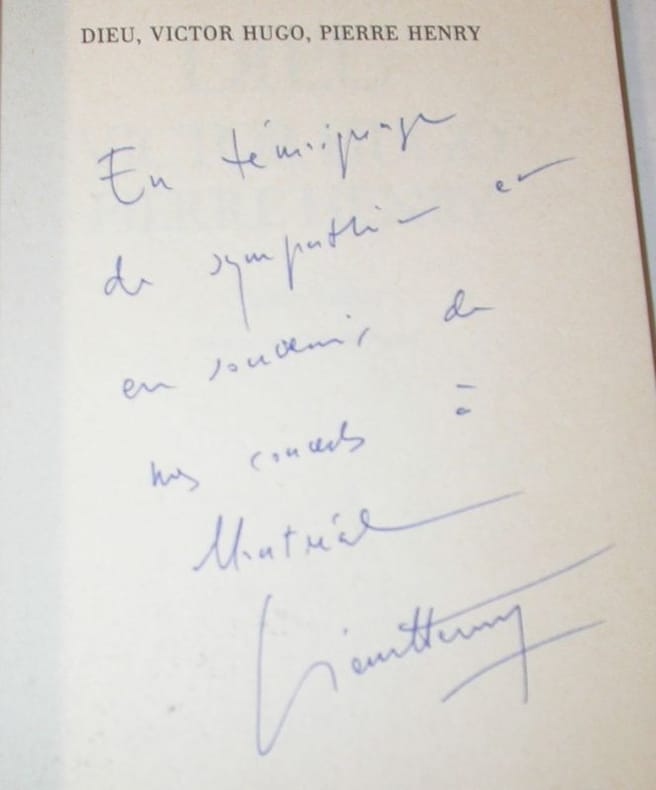 DIEU, VICTOR HUGO, PIERRE HENRY
En témoignage
de sympathie et
en souvenir de
nos concerts à
Montréal
Pierre Henry